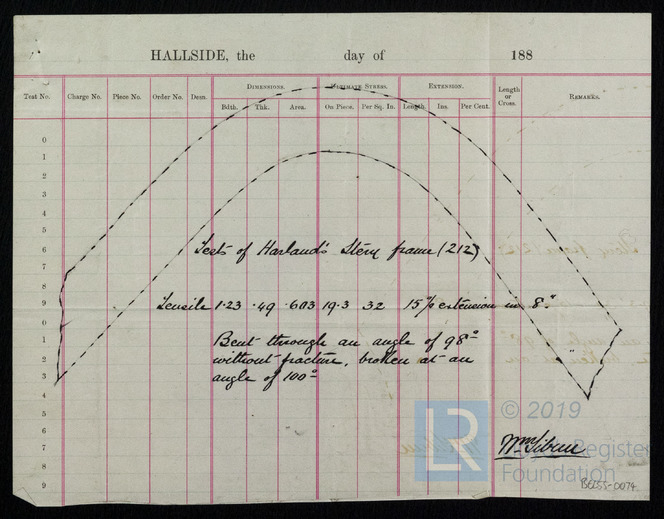 HALLSIDE, the day of 188
Test No. Charge No. Piece No. Order No. Desn. Dimensions. Ultimate Stress. Extension. Length or Cross. Remarks.
Bdth. Thk. Area. On Piece. Per Sq. In. Length Ins. Per Cent.
0
1
2
3
4
5
6
7
8
9
0
1
2
3
4
5
6
7
8
9
Tests of Harland's Stern frame (212)
Tensile 1·23 ·49 ·603 19·3 32 15% extension in 8"
Bent through an angle of 98°
without fracture, broken at an
angle of 100°
Wm
LR © 2019
Register
Foundation
BC55-0074